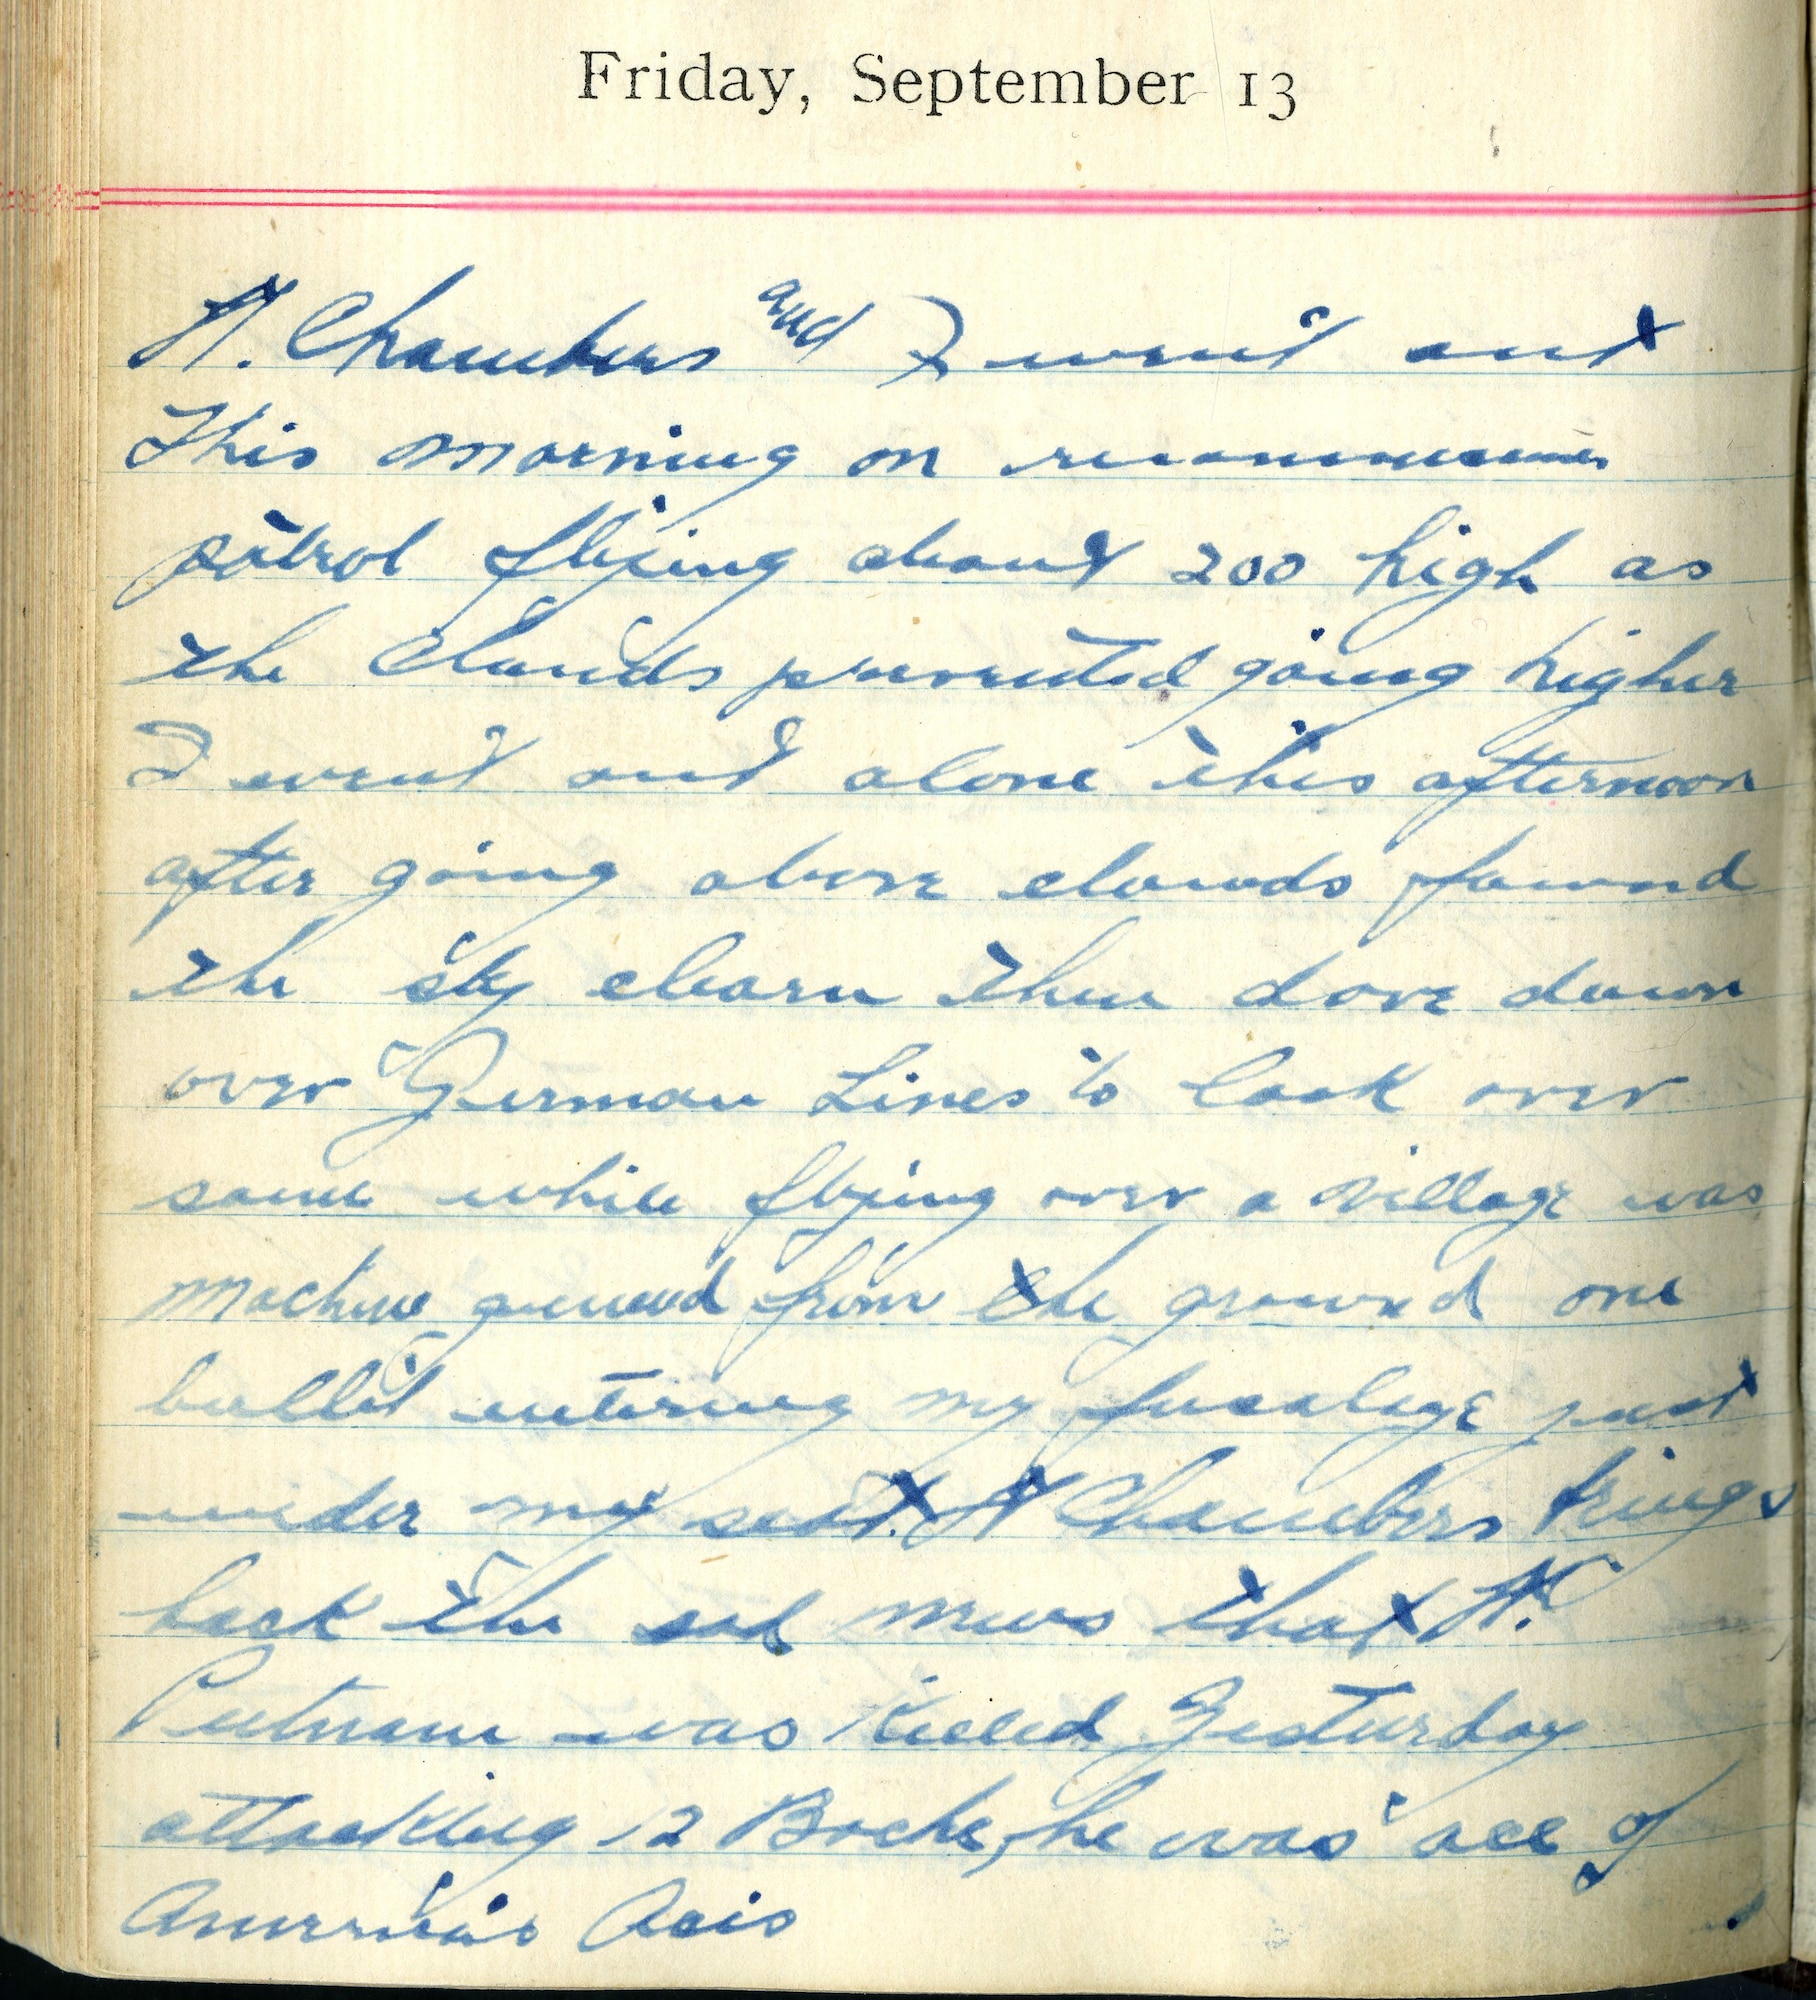 Friday, September 13
Lt. Chambers and I went out
This morning on reconnaissance
patrol flying about 200 high as
the Clouds prevented going higher
I went out alone this afternoon
after going above clouds found
the sky clear then dove down
over German Lines to look over
same while flying over a village was
machine gunned from the ground one
bullet entering my fusalage just
under my seat. Lt Chambers brings
back the sad news that Lt.
Putnam was killed Yesturday
attacking 12 Boche, he was ace of
Americas Aces